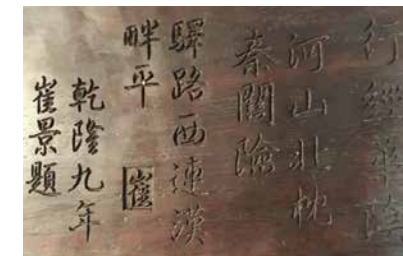 行經華陰
河山北枕
秦關險
驛路西連漢
畤平 崔
乾隆九年
崔景題